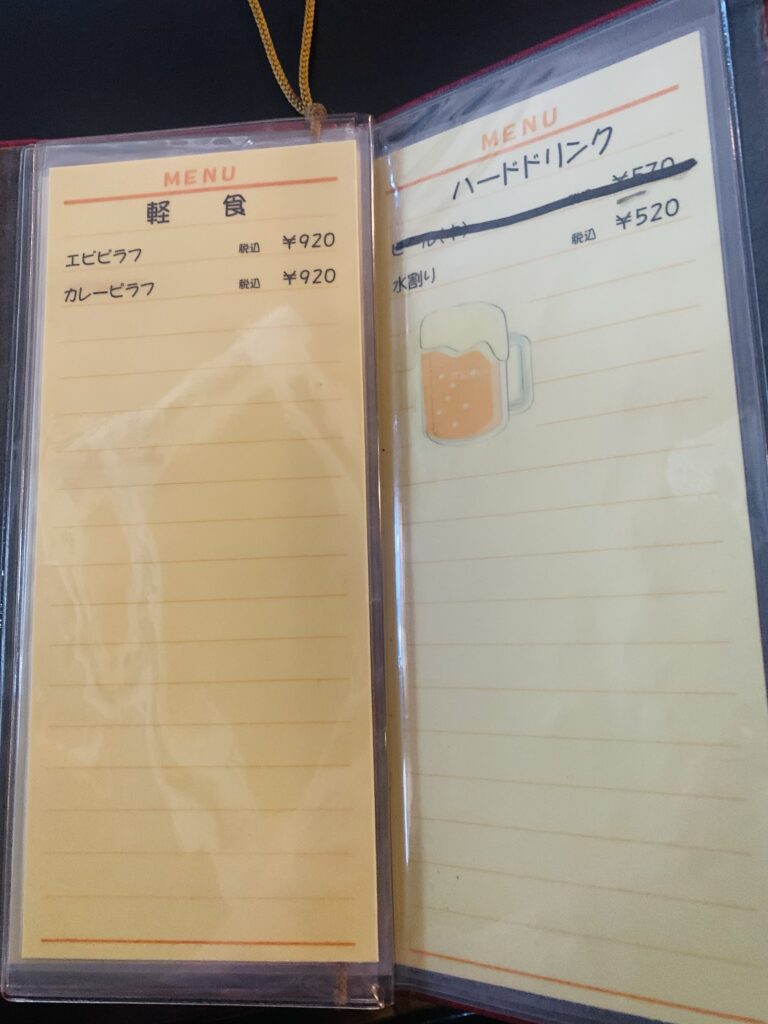 MENU
軽 食
エビピラフ 税込 ¥920
カレーピラフ 税込 ¥920
MENU
ハードドリンク
ビール(中) ¥570
水割り 税込 ¥520